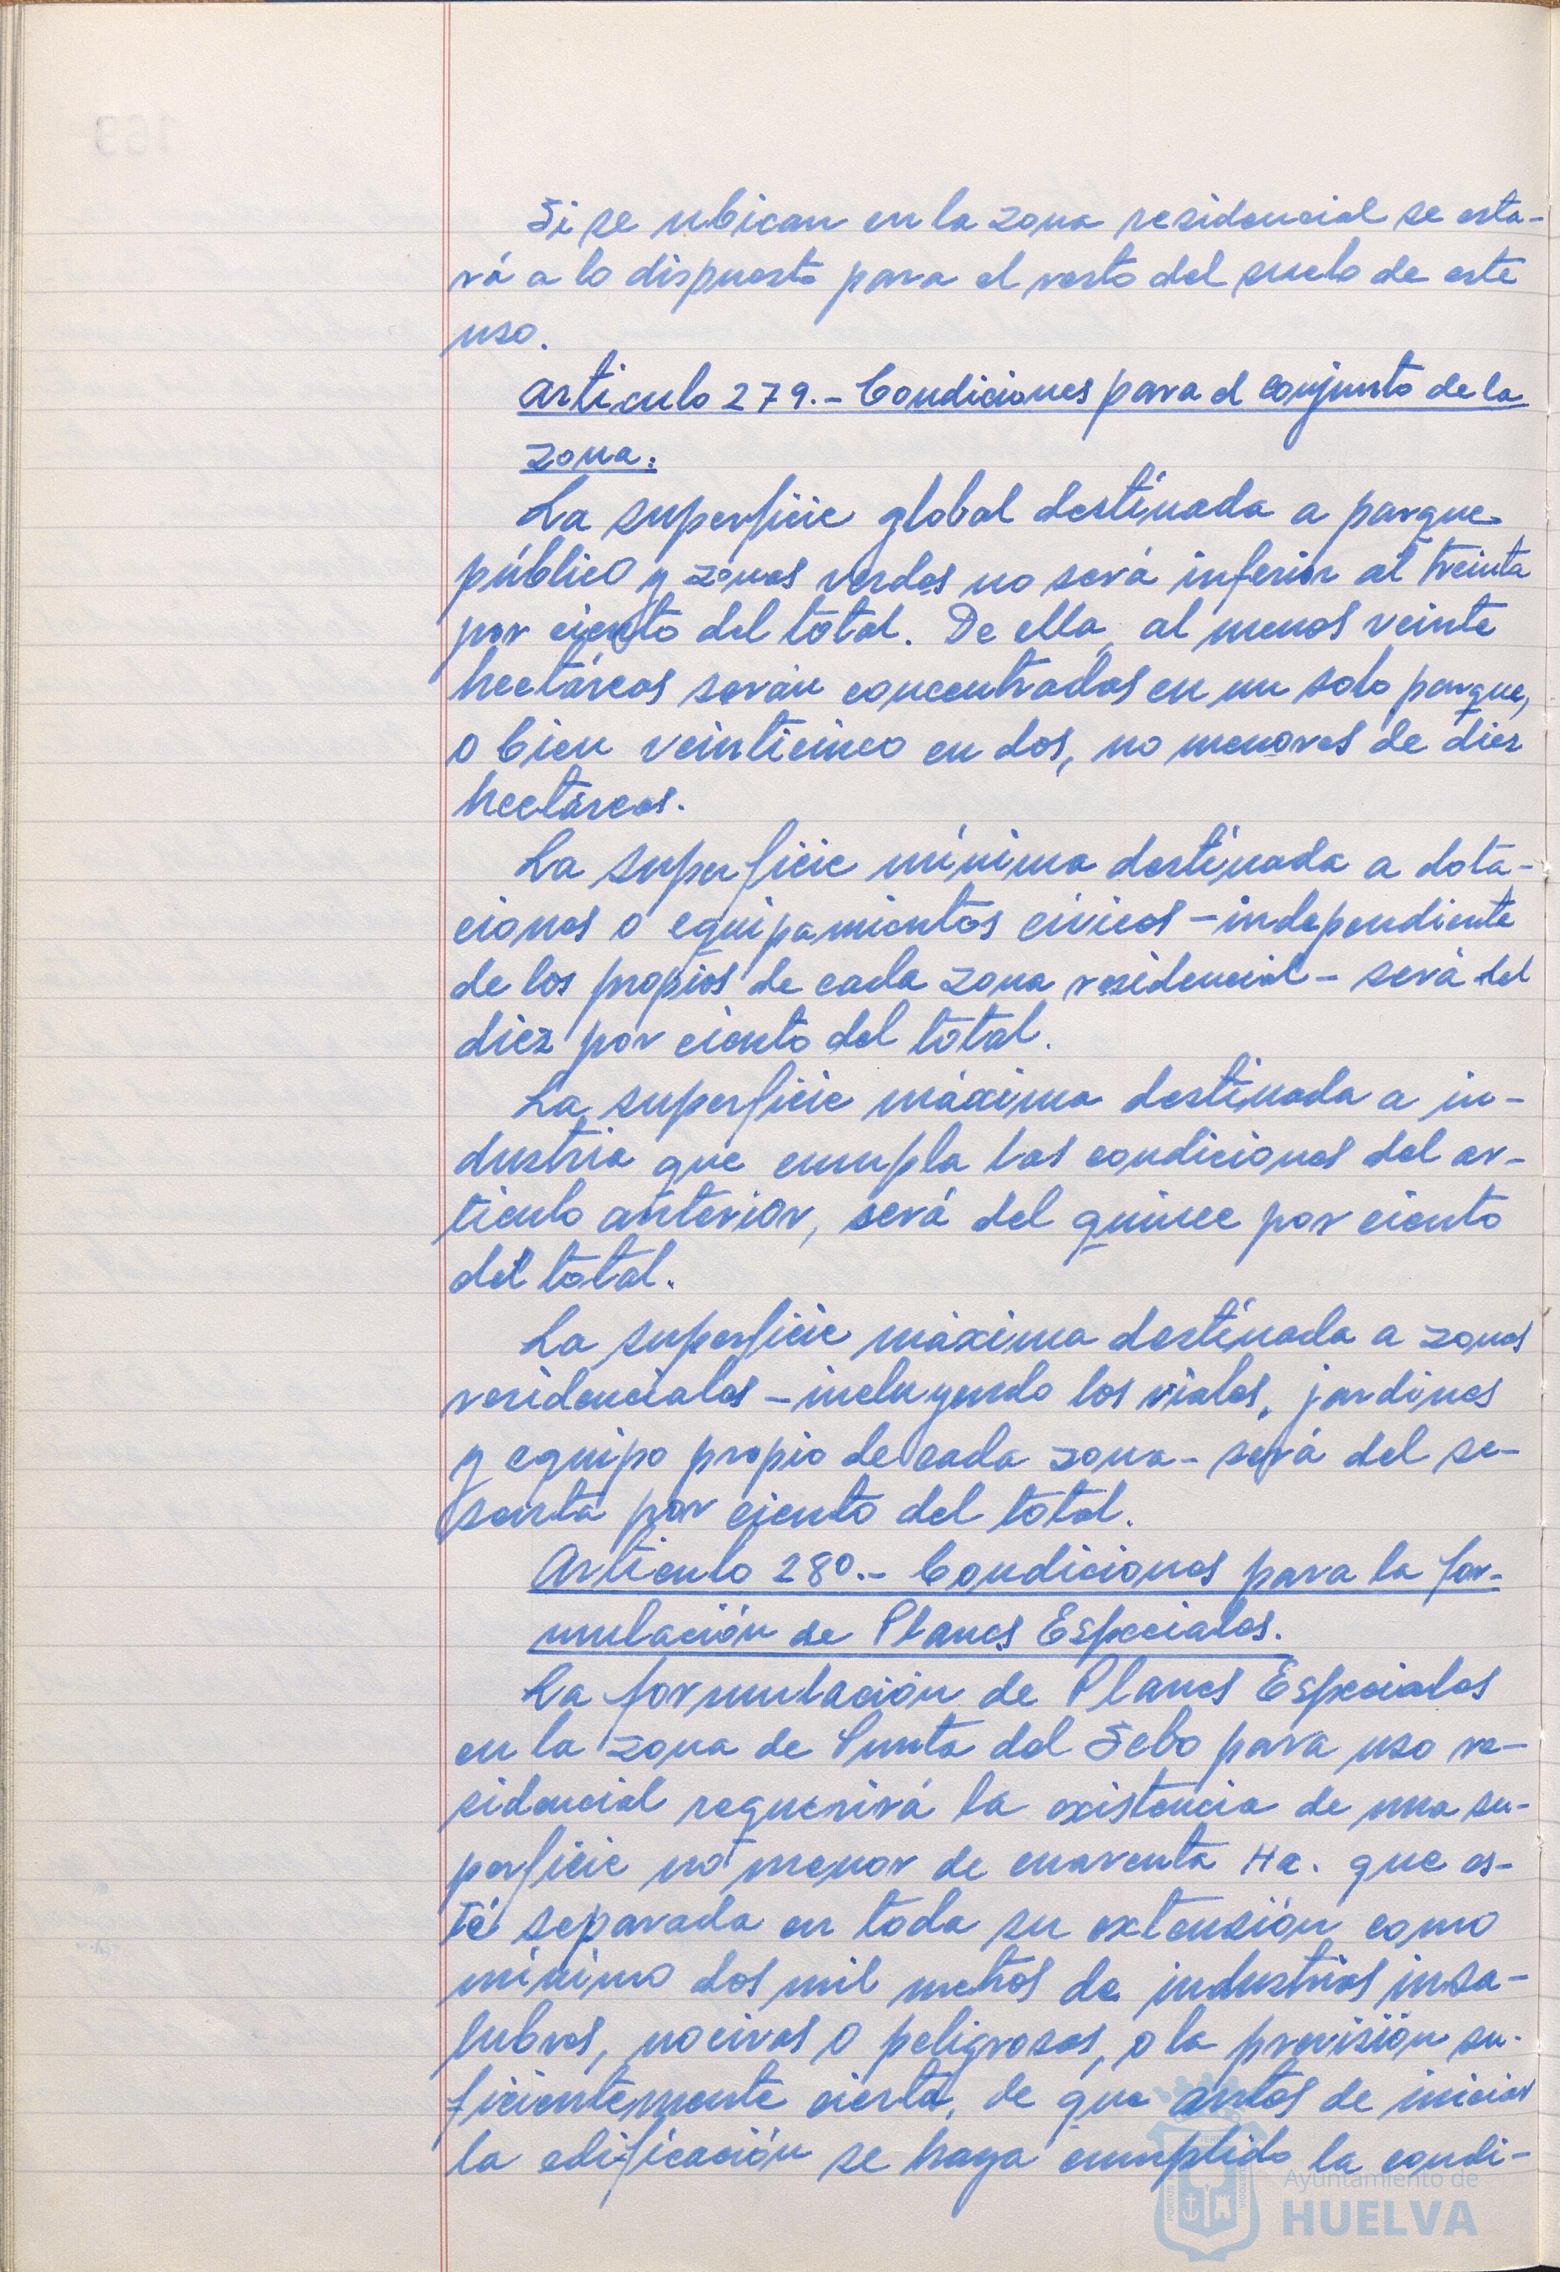 Si se ubican en la zona residencial se esta-
rá a lo dispuesto para el resto del suelo de este
uso.
Articulo 279.- Condiciones para el conjunto de la
zona:
La superficie global destinada a parque
público y zonas verdes no será inferior al treinta
por ciento del total. De ella, al menos veinte
hectáreas serán concentradas en un solo parque,
o bien veinticinco en dos, no menores de diez
hectáreas.
La superficie mínima destinada a dota-
ciones o equipamientos cívicos - independiente
de los propios de cada zona residencial - será del
diez por ciento del total.
La superficie máxima destinada a in-
dustria que cumpla las condiciones del ar-
ticulo anterior, será del quince por ciento
del total.
La superficie máxima destinada a zonas
residenciales - incluyendo los viales, jardines
y equipo propio de cada zona - será del se-
senta por ciento del total.
Articulo 280.- Condiciones para la for-
mulación de Planes Especiales.
La formulación de Planes Especiales
en la zona de Punta del Sebo para uso re-
sidencial requerirá la existencia de una su-
perficie no menor de cuarenta Ha. que es-
té separada en toda su extensión como
mínimo dos mil metros de industrias insa-
lubres, nocivas o peligrosas, o la previsión su-
ficientemente cierta, de que antes de iniciar
la edificación se haya cumplido la condi-
Ayuntamiento de
HUELVA